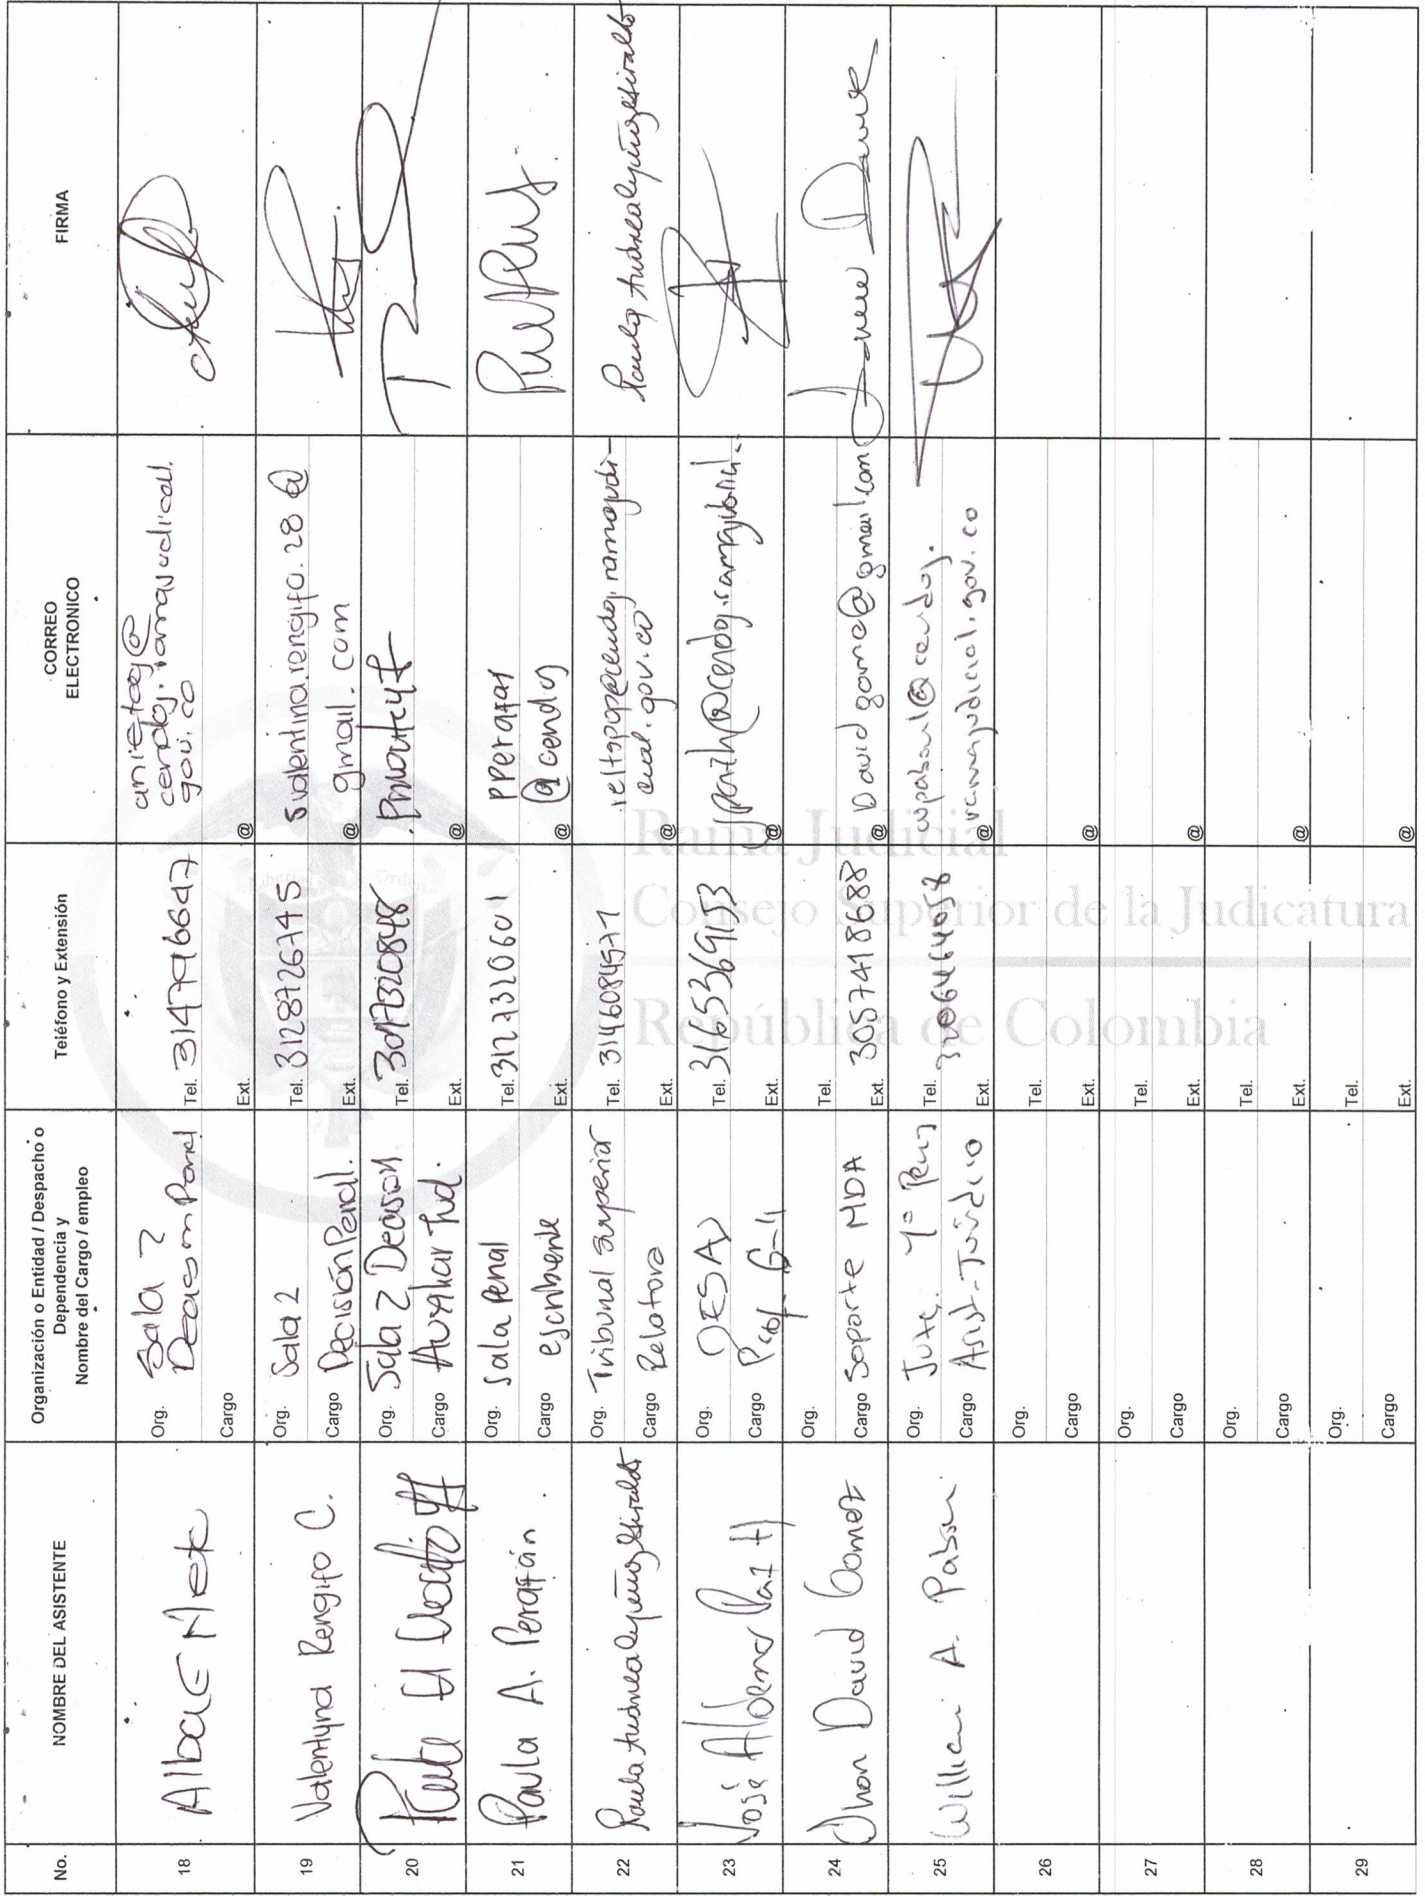 No.
NOMBRE DEL ASISTENTE
Organización o Entidad / Despacho o
Dependencia y
Nombre del Cargo / empleo
Teléfono y Extensión
CORREO
ELECTRONICO
FIRMA
18
Alba E
Org. Sala 2
Cargo
Tel. 3147796647
Ext.
@
cendoj.ramajudicial.
gov.co
19
Valentyna Rengifo C.
Org. Sala 2
Cargo Decisión Penal.
Tel. 3128726745
Ext.
svalentina.rengifo.28 @
@ gmail.com
20
Org. Sala 2 Decision
Cargo Auxiliar Jud.
Tel.
Ext.
@
21
Paula A. Perafán
Org. Sala Penal
Cargo escribiente
Tel. 3127320601
Ext.
pperafar
@ cendoj
@
22
Paula Andrea
Org. Tribunal Superior
Cargo Relatora
Tel. 3146084571
Ext.
@
cial.gov.co
Paula Andrea
23
José Aldemar Paz H
Org. DESAJ
Cargo Prof. G-11
Tel. 3165369153
Ext.
@
24
Jhon David Gomez
Org.
Cargo Soporte MDA
Tel.
Ext. 3057418688
@ David gome@gmail.com
25
William A. Pabon
Org.
Cargo Asist-Jurídico
Tel. 3206464058
Ext.
wpabonl@cendoj.
@ ramajudicial.gov.co
26
Org.
Cargo
Tel.
Ext.
@
27
Org.
Cargo
Tel.
Ext.
@
28
Org.
Cargo
Tel.
Ext.
@
29
Org.
Cargo
Tel.
Ext.
@
Libertad y Orden
Rama Judicial
Consejo Superior de la Judicatura
República de Colombia